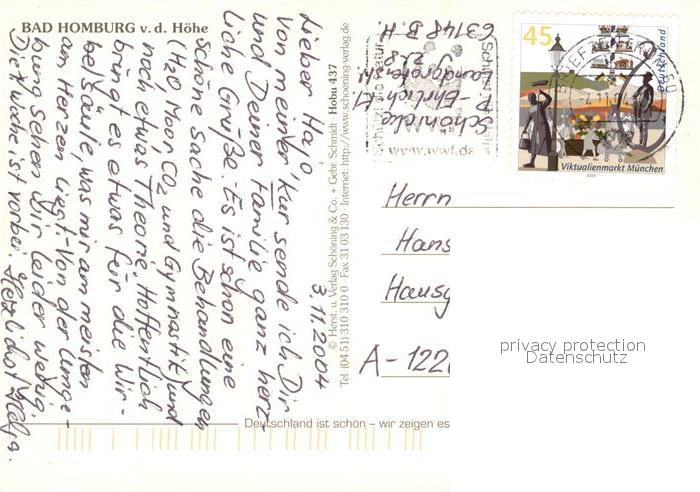 BAD HOMBURG v. d. Höhe
3.11.2004
Lieber Hajo,
von meiner Kur sende ich Dir
und Deiner Familie ganz herz-
lich Grüße. Es ist schon eine
schöne Sache die Behandlungen
(H2O Vor, CO2 und Gymnastik) und
noch etwas Theorie. Hoffentlich
bringt es etwas für die Wir-
belsäule was mir am meisten
am Herzen liegt. Von der Umge-
bung sehen wir leider wenig.
Die 1. Woche ist vorbei. Herzlichst
© Herst. u. Verlag Schöning & Co. + Gebr. Schmidt Hohu 437
Tel. (04 51) 310 310 0 · Fax 31 03 130 · Internet: http://www.schoening-verlag.de
Deutschland ist schön – wir zeigen es
Schönicke
P - Ehrlich Kl.
Landgrafenstr.
63148 B. H.
www.wwf.de
BRIEFZENTRUM
45
Deutschland
Viktualienmarkt München
2003
Herrn
Hans
Hausg
A-122
privacy protection
Datenschutz